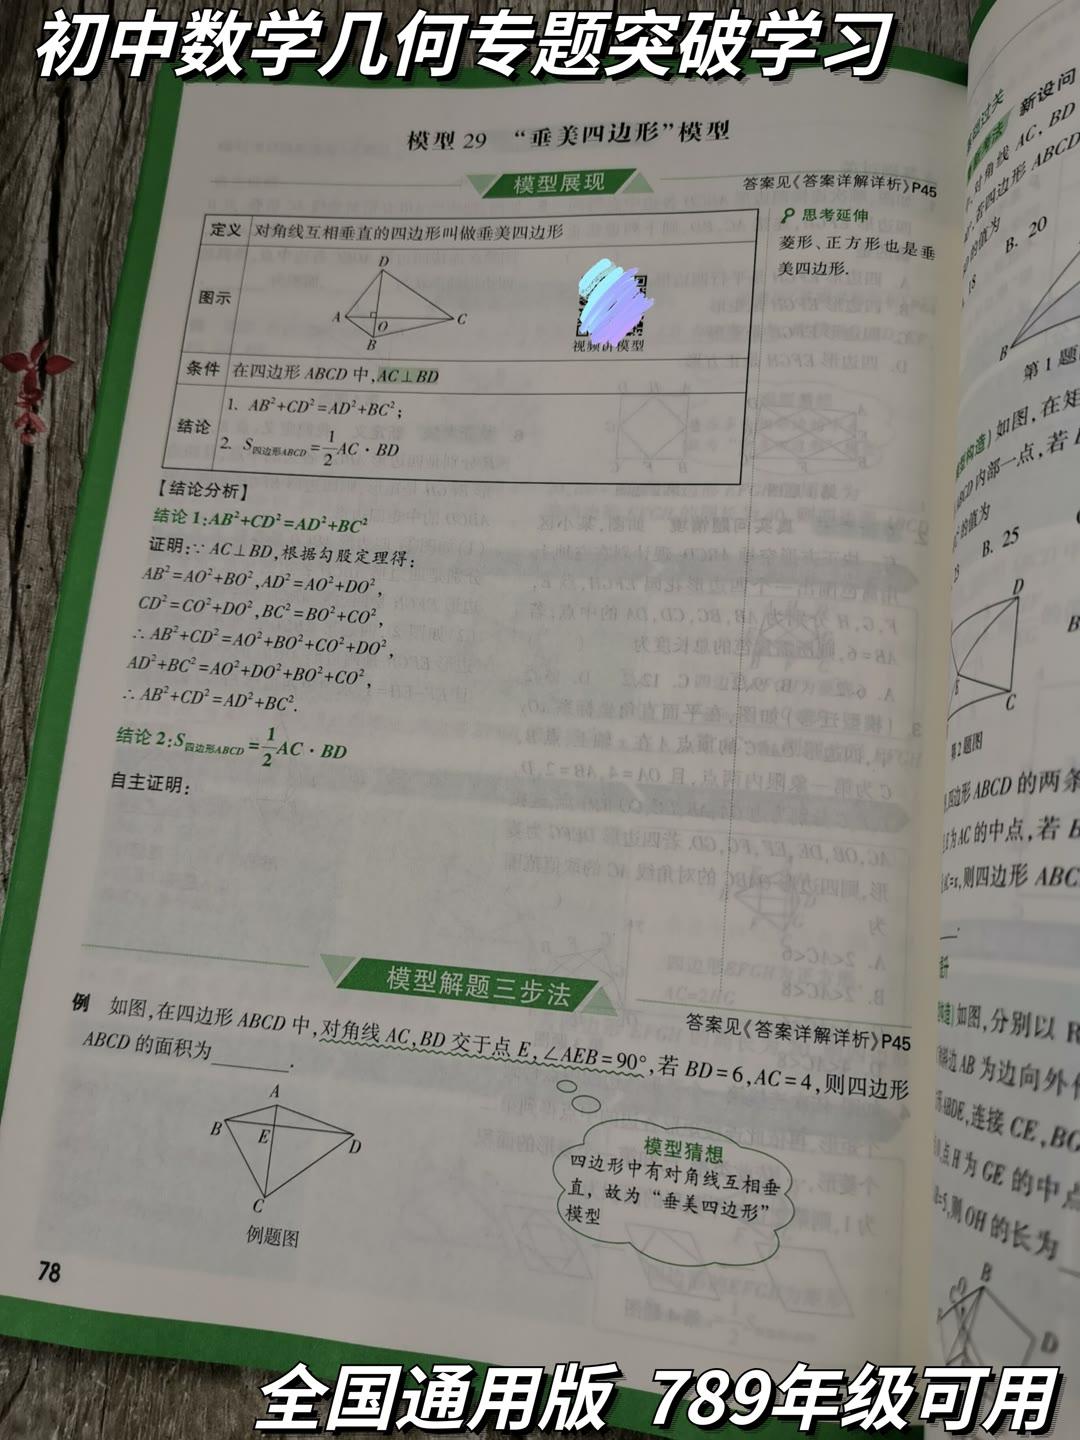 初中数学几何专题突破学习
模型29 “垂美四边形”模型
模型展现
答案见《答案详解详析》P45
定义 对角线互相垂直的四边形叫做垂美四边形
思考延伸
菱形、正方形也是垂
美四边形.
图示
D
A
O
C
B
视频讲模型
条件 在四边形ABCD中,AC⊥BD
结论
1. AB²+CD²=AD²+BC²;
2. S四边形ABCD=1/2AC·BD
【结论分析】
结论1:AB²+CD²=AD²+BC²
证明:∵AC⊥BD,根据勾股定理得:
AB²=AO²+BO²,AD²=AO²+DO²,
CD²=CO²+DO²,BC²=BO²+CO²,
∴AB²+CD²=AO²+BO²+CO²+DO²,
AD²+BC²=AO²+DO²+BO²+CO²,
∴AB²+CD²=AD²+BC².
结论2:S四边形ABCD=1/2AC·BD
自主证明:
模型解题三步法
答案见《答案详解详析》P45
例 如图,在四边形ABCD中,对角线AC,BD交于点E,∠AEB=90°,若BD=6,AC=4,则四边形
ABCD的面积为______.
A
B
E
D
C
例题图
模型猜想
四边形中有对角线互相垂
直，故为“垂美四边形”
模型
78
新设问
对角线AC,BD
若四边形ABCD
的值为
B. 20
18
B
第1题
如图,在矩
ABCD内部一点,若
的值为
B. 25
D
C
第2题图
四边形ABCD的两条
为AC的中点,若
则四边形ABC
如图,分别以R
斜边AB为边向外作
ABDE,连接CE,BG
点H为GE的中点
则OH的长为
B
D
全国通用版 789年级可用